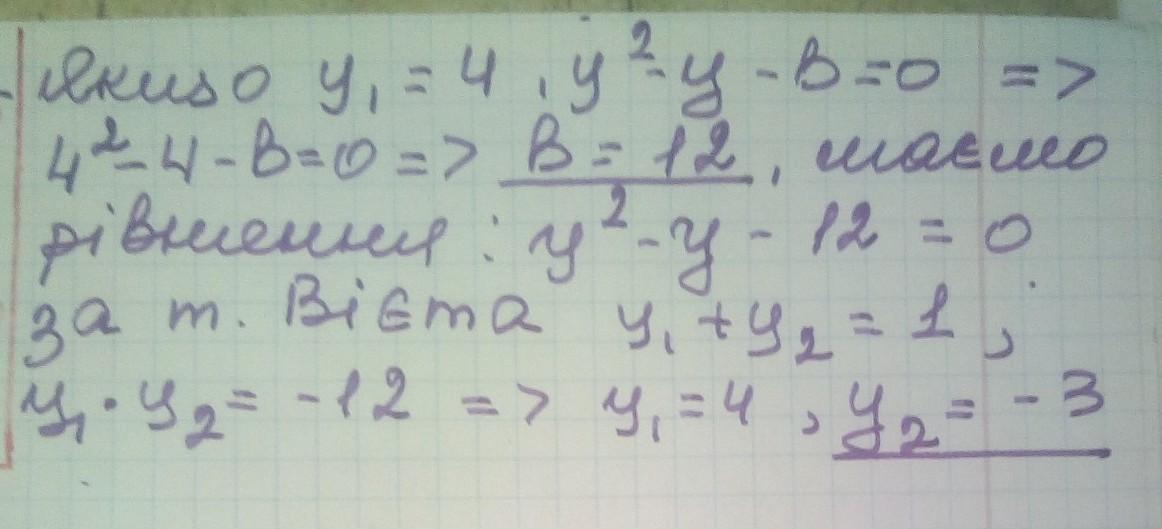 Якщо y₁ = 4, y² - y - в = 0 =>
4² - 4 - в = 0 => в = 12, маємо
рівняння: y² - y - 12 = 0
За т. Вієта y₁ + y₂ = 1,
y₁ · y₂ = -12 => y₁ = 4, y₂ = -3